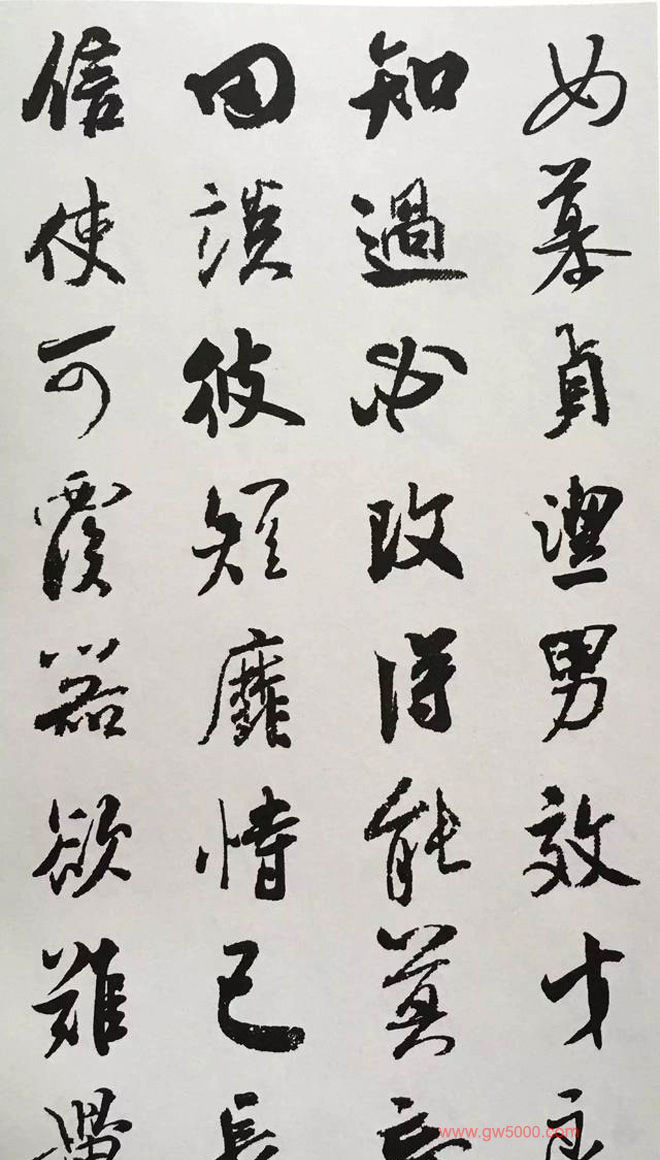 女慕貞潔男效才良
知過必改得能莫忘
罔談彼短靡恃己長
信使可覆器欲難量
www.gw5000.com